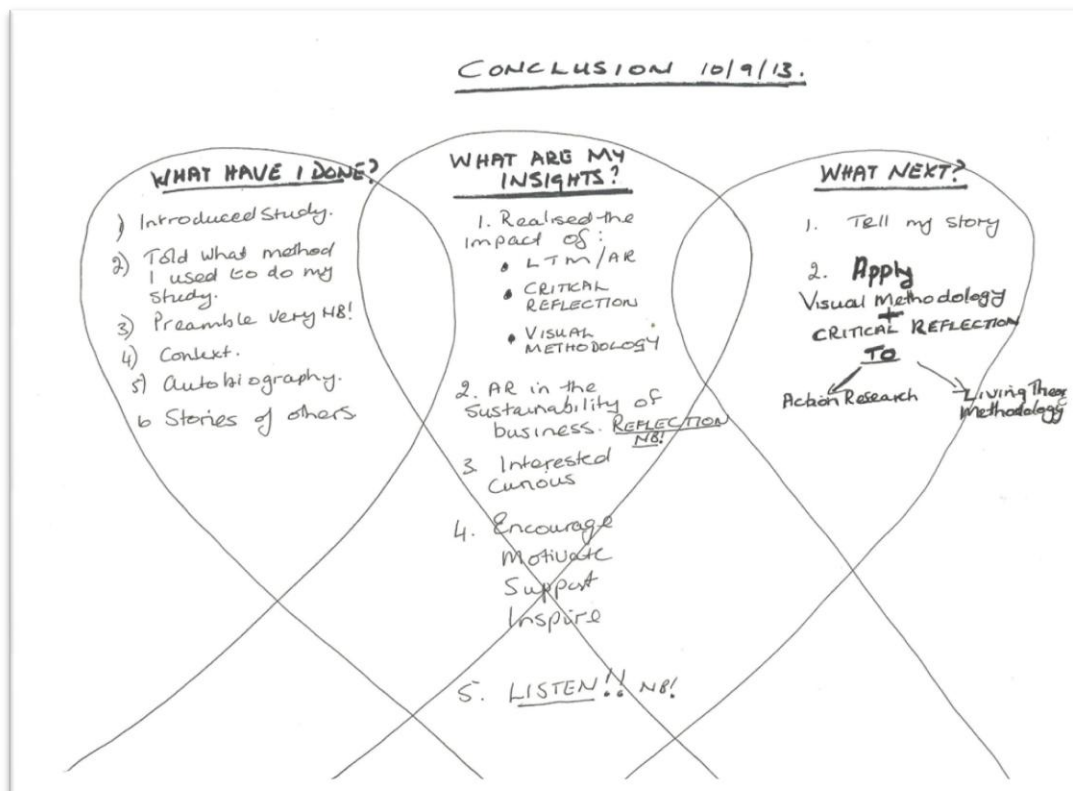 CONCLUSION 10/9/13.
WHAT HAVE I DONE?
1) Introduced Study.
2) Told what method
I used to do my
study.
3) Preamble very NB!
4) Context.
5) Autobiography.
6 Stories of others
WHAT ARE MY
INSIGHTS?
1. Realised the
impact of:
• LTM/AR
• CRITICAL
REFLECTION
• VISUAL
METHODOLOGY
2. AR in the
sustainability of
business. REFLECTION
NB!
3. Interested
Curious
4. Encourage
Motivate
Support
Inspire
5. LISTEN!! NB!
WHAT NEXT?
1. Tell my story
2. Apply
Visual Methodology
+
CRITICAL REFLECTION
TO
Action Research
Living Theory
Methodology